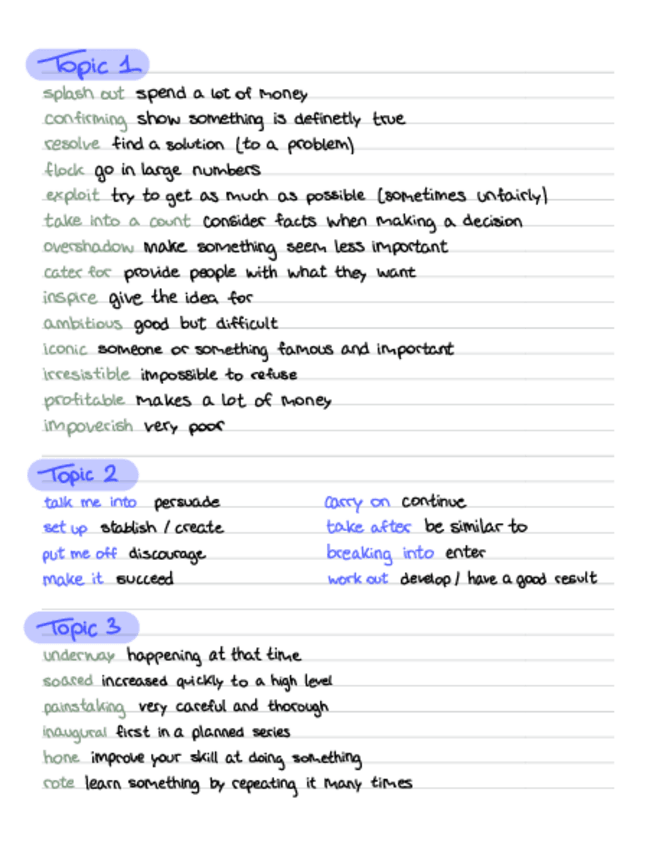 Topic 1
splash out spend a lot of money
confirming show something is definetly true
resolve find a solution (to a problem)
flock go in large numbers
exploit try to get as much as possible (sometimes unfairly)
take into a count consider facts when making a decision
overshadow make something seem less important
cater for provide people with what they want
inspire give the idea for
ambitious good but difficult
iconic someone or something famous and important
irresistible impossible to refuse
profitable makes a lot of money
impoverish very poor
Topic 2
talk me into persuade
set up stablish / create
put me off discourage
make it succeed
carry on continue
take after be similar to
breaking into enter
work out develop / have a good result
Topic 3
underway happening at that time
soared increased quickly to a high level
painstaking very careful and thorough
inaugural first in a planned series
hone improve your skill at doing something
rote learn something by repeating it many times